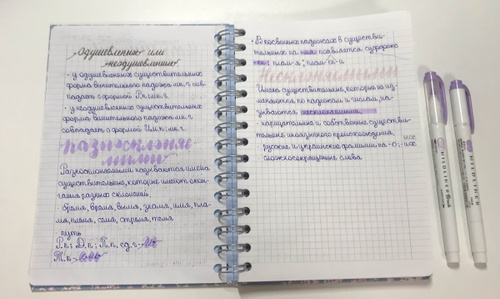 Одушевлённые или
неодушевлённые
· у одушевлённых существительных
форма винительного падежа мн. ч. сов-
падает с формой Р.п. мн. ч.
· у неодушевлённых существительных
форма винительного падежа мн. ч.
совпадает с формой И.п. мн. ч.
Разносклоняе-
мыми
Разносклоняемыми называются имена
существительные, которые имеют окон-
чания разных склонений.
· бремя, время, вымя, знамя, имя, пла-
мя, племя, семя, стремя, темя
путь
Р.п.; Д.п.; П.п. ед. ч. -
Т.п. -
· В косвенных падежах в существи-
тельных на появляется суффикс
плам-я; плам-ен-и
Несклоняемыми
Имена существительные, которые не из-
меняются по падежам и числам, на-
зываются несклоняемыми.
· нарицательные и собственные существи-
тельные иноязычного происхождения
· русские и украинские фамилии на -о; -их
· сложносокращённые слова
MILDLINER
MILDLINER